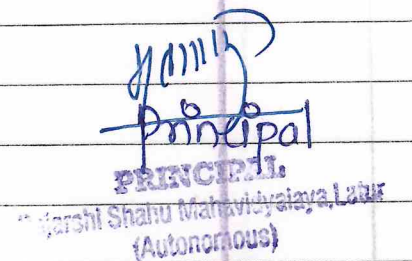 Principal
PRINCIPAL
Rajarshi Shahu Mahavidyalaya, Latur
(Autonomous)